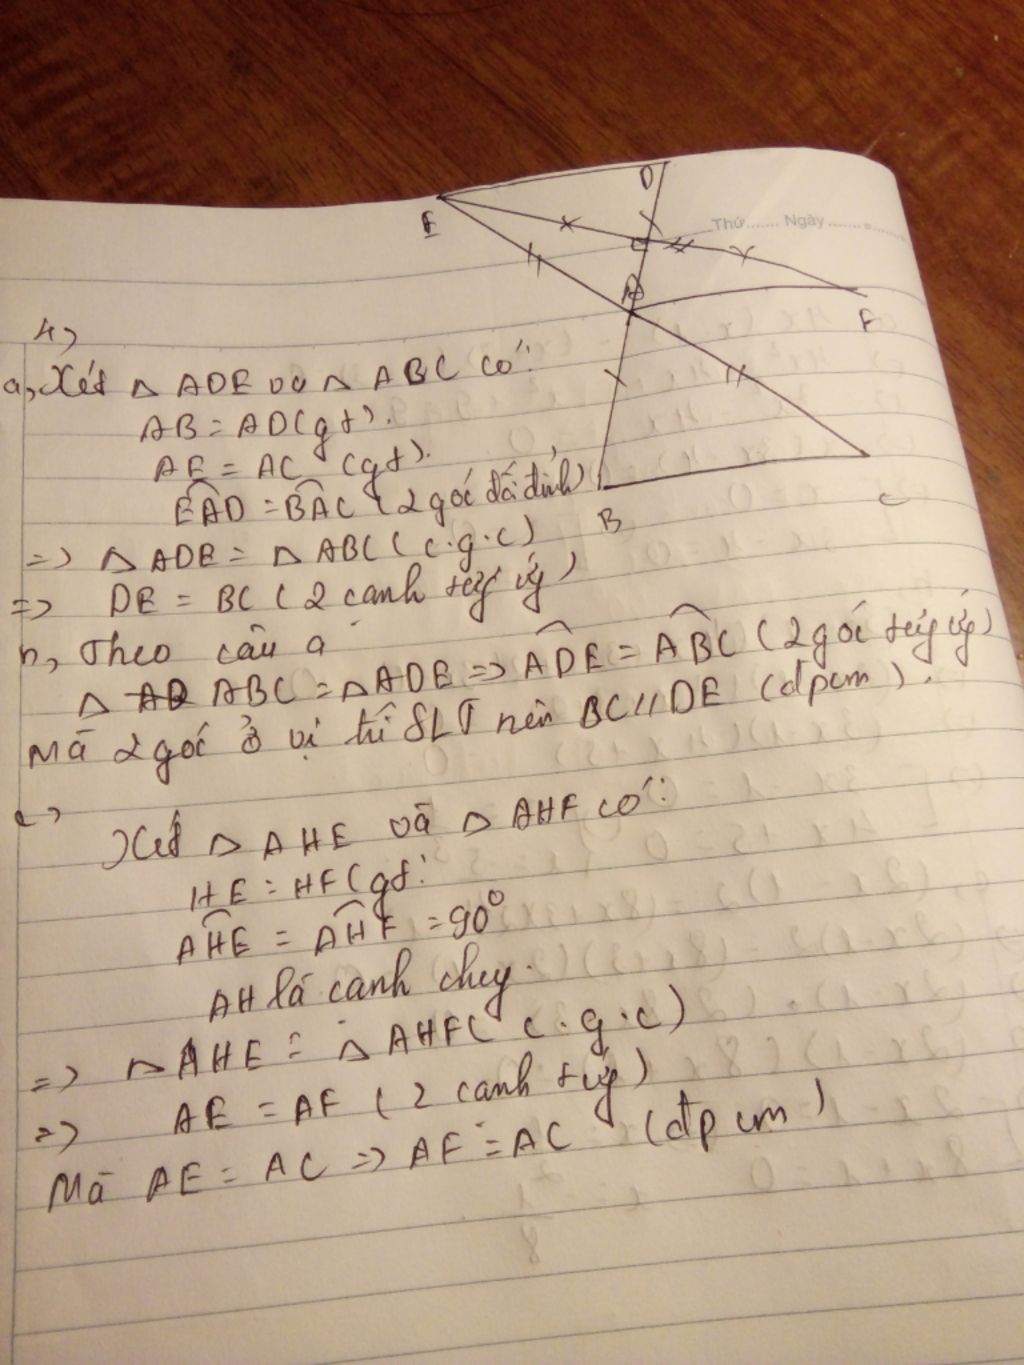 D
E
Thứ....... Ngày.........
A
F
B
C
4)
a, Xét △ ADE và △ ABC có:
AB = AD (gt).
AE = AC (gt).
EAD = BAC (2 góc đối đỉnh)
=> △ ADE = △ ABC (c.g.c)
=> DE = BC (2 cạnh tứ ứ)
b, Theo câu a
△ ABC = △ ADE => ADE = ABC (2 góc tứ ứ)
Mà 2 góc ở vị trí SLT nên BC // DE (đpcm).
c,
Xét △ AHE và △ AHF có:
HE = HF (gt:
AHE = AHF = 90°
AH là cạnh chug.
=> △ AHE = △ AHF (c.g.c)
=> AE = AF (2 cạnh tứ)
Mà AE = AC => AF = AC (đpcm)